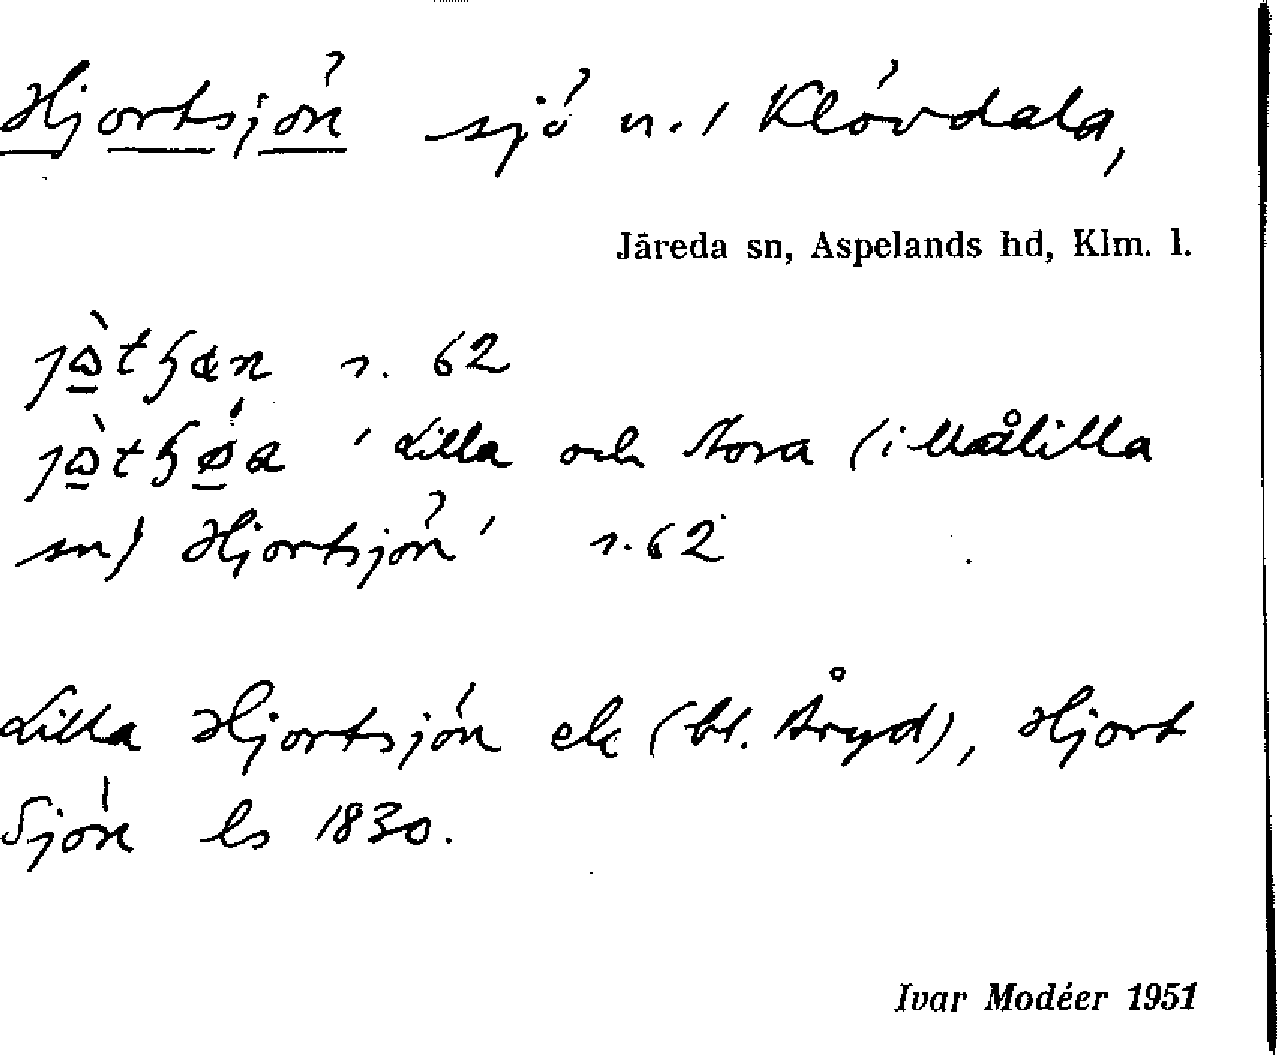 Hjortsjön sjö n. i Klövdala,
Järeda sn, Aspelands hd, Klm. l.
s. 62
'Lilla och Stora (i Målilla
sn) Hjortsjön' s. 62
Lilla Hjortsjön ek (bl. Åryd), Hjort
Sjön ls 1830.
Ivar Modéer 1951